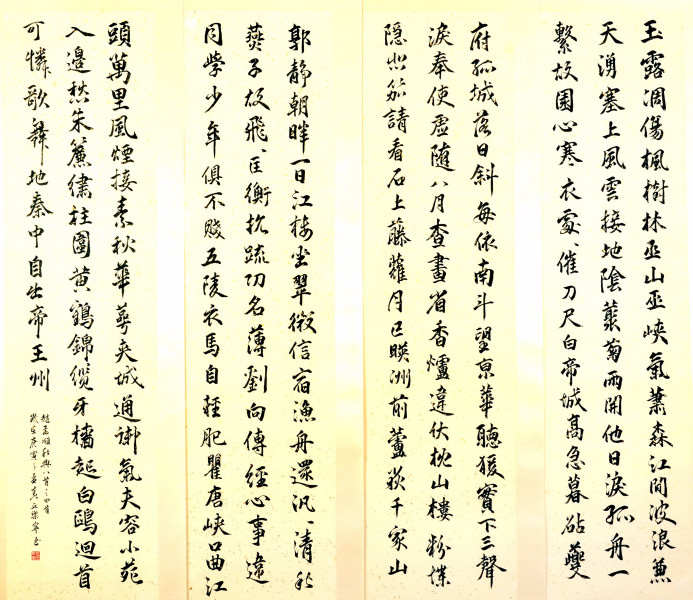 玉露凋傷楓樹林巫山巫峽氣蕭森江間波浪兼
天湧塞上風雲接地陰叢菊兩開他日淚孤舟一
繫故園心寒衣處〻催刀尺白帝城高急暮砧夔
府孤城落日斜每依南斗望京華聽猨實下三聲
淚奉使虛隨八月查畫省香爐違伏枕山樓粉堞
隱悲笳請看石上藤蘿月已暎洲前蘆荻千家山
郭靜朝暉一日江樓坐翠微信宿漁舟還汎〻清秋
燕子故飛〻匡衡抗疏功名薄劉向傳經心事違
同學少年俱不賤五陵衣馬自輕肥瞿唐峽口曲江
頭萬里風煙接素秋華萼夾城通御氣夫容小苑
入邊愁朱簾繡柱圍黃鶴錦纜牙檣起白鷗迴首
可憐歌舞地秦中自古帝王州
趙孟頫秋興八首之四首
歲在庚寅之孟春